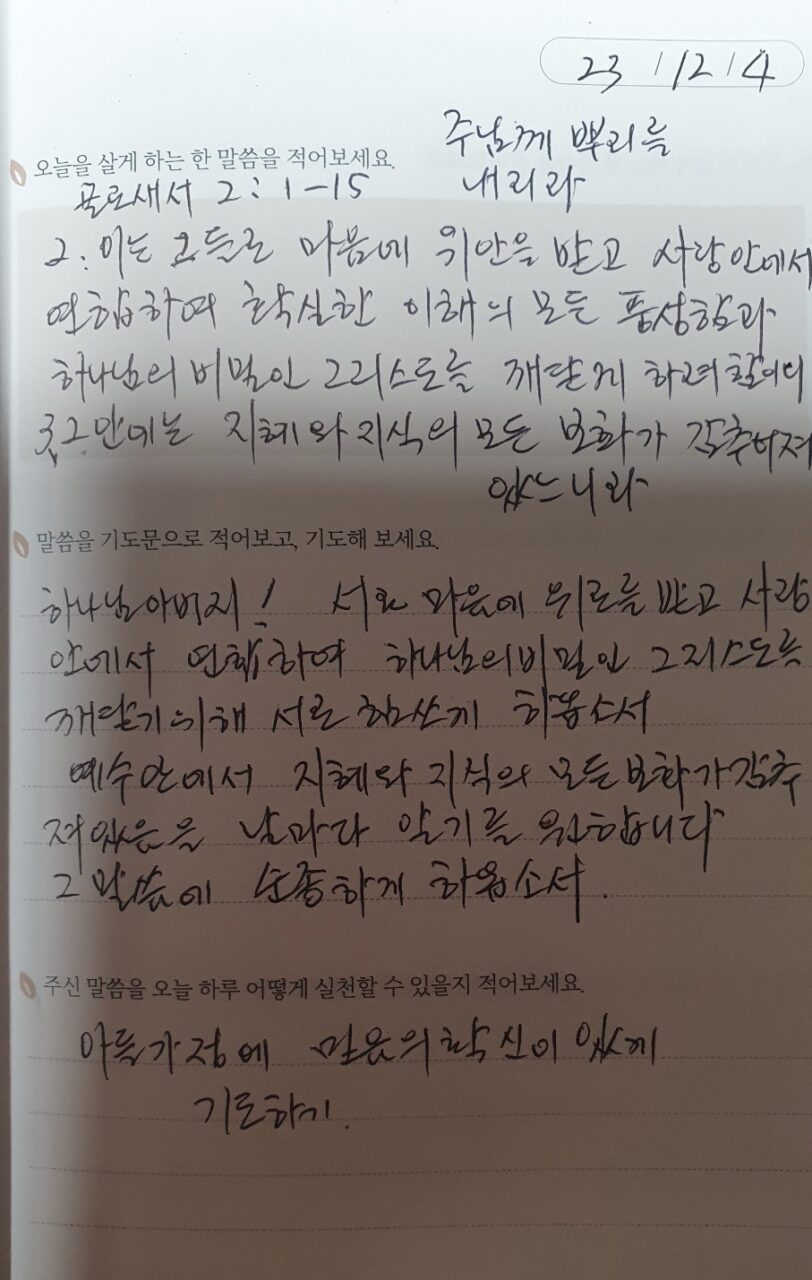 23 / 12 / 4
주님께 뿌리를
내리라
오늘을 살게 하는 한 말씀을 적어보세요.
골로새서 2:1-15
2: 이는 그들로 마음에 위안을 받고 사랑안에서
연합하여 확실한 이해의 모든 풍성함과
하나님의 비밀인 그리스도를 깨닫게 하려함이니
3 그안에는 지혜와 지식의 모든 보화가 감추어져
있느니라
말씀을 기도문으로 적어보고, 기도해 보세요.
하나님아버지! 서로 마음에 위로를 받고 사랑
안에서 연합하여 하나님의 비밀인 그리스도를
깨닫기위해 서로 힘쓰게 하옵소서
예수안에서 지혜와 지식의 모든보화가감추
져있음을 날마다 알기를 원합니다
그 말씀에 순종하게 하옵소서.
주신 말씀을 오늘 하루 어떻게 실천할 수 있을지 적어보세요.
아들가정에 믿음의확신이 있게
기도하기.